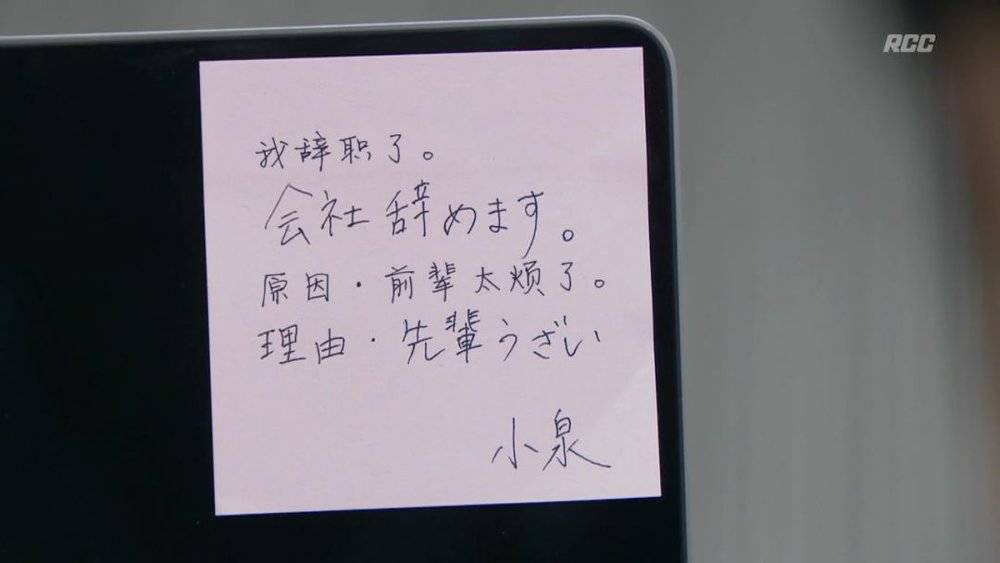 RCC
我辞职了。
会社辞めます。
原因·前辈太烦了。
理由·先輩うざい
小泉